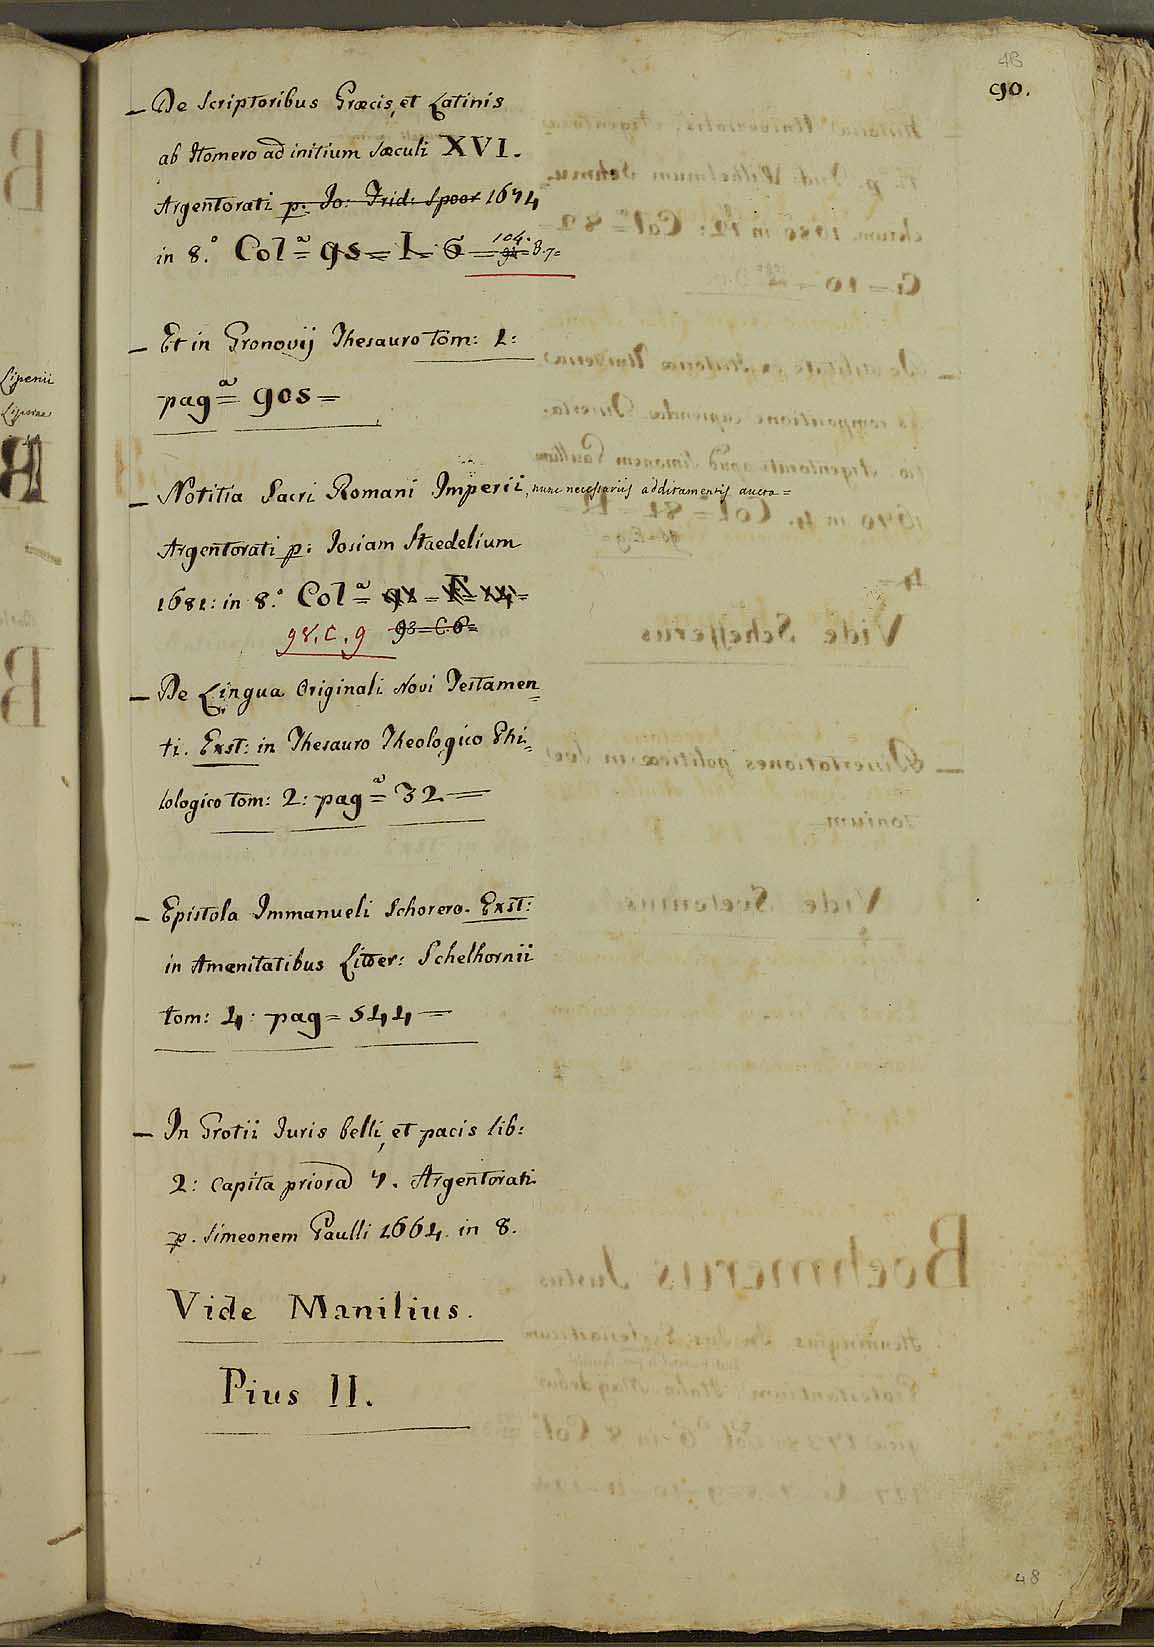 48
90.
— De Scriptoribus Græcis, et Latinis
ab Homero ad initium sæculi XVI.
Argentorati p. Jo: Frid: Spoor 1674
in 8.° Col.ª = 95 = I = 6 = 104. B. 7 =
— Et in Gronovij Thesauro tom: 1:
pag.ª = 905 =
— Notitia Sacri Romani Imperii, nunc necessariis additamentis aucta =
Argentorati p: Josiam Staedelium
1681: in 8.° Col.ª =
93 = C. 6 =
98. C. 9
— De Lingua Originali Novi Testamen=
ti. Exst: in Thesauro Theologico Phi=
lologico tom: 2: pag.ª = 32 =
— Epistola Immanueli Schorero. Exst:
in Amænitatibus Litter: Schelhornii
tom: 4: pag = 544 =
— In Grotii Juris belli, et pacis lib:
2: Capita priora 7. Argentorati
p. Simeonem Paulli 1664. in 8.
Vide Manilius.
Pius II.
48
Lipenii
Lipsiae